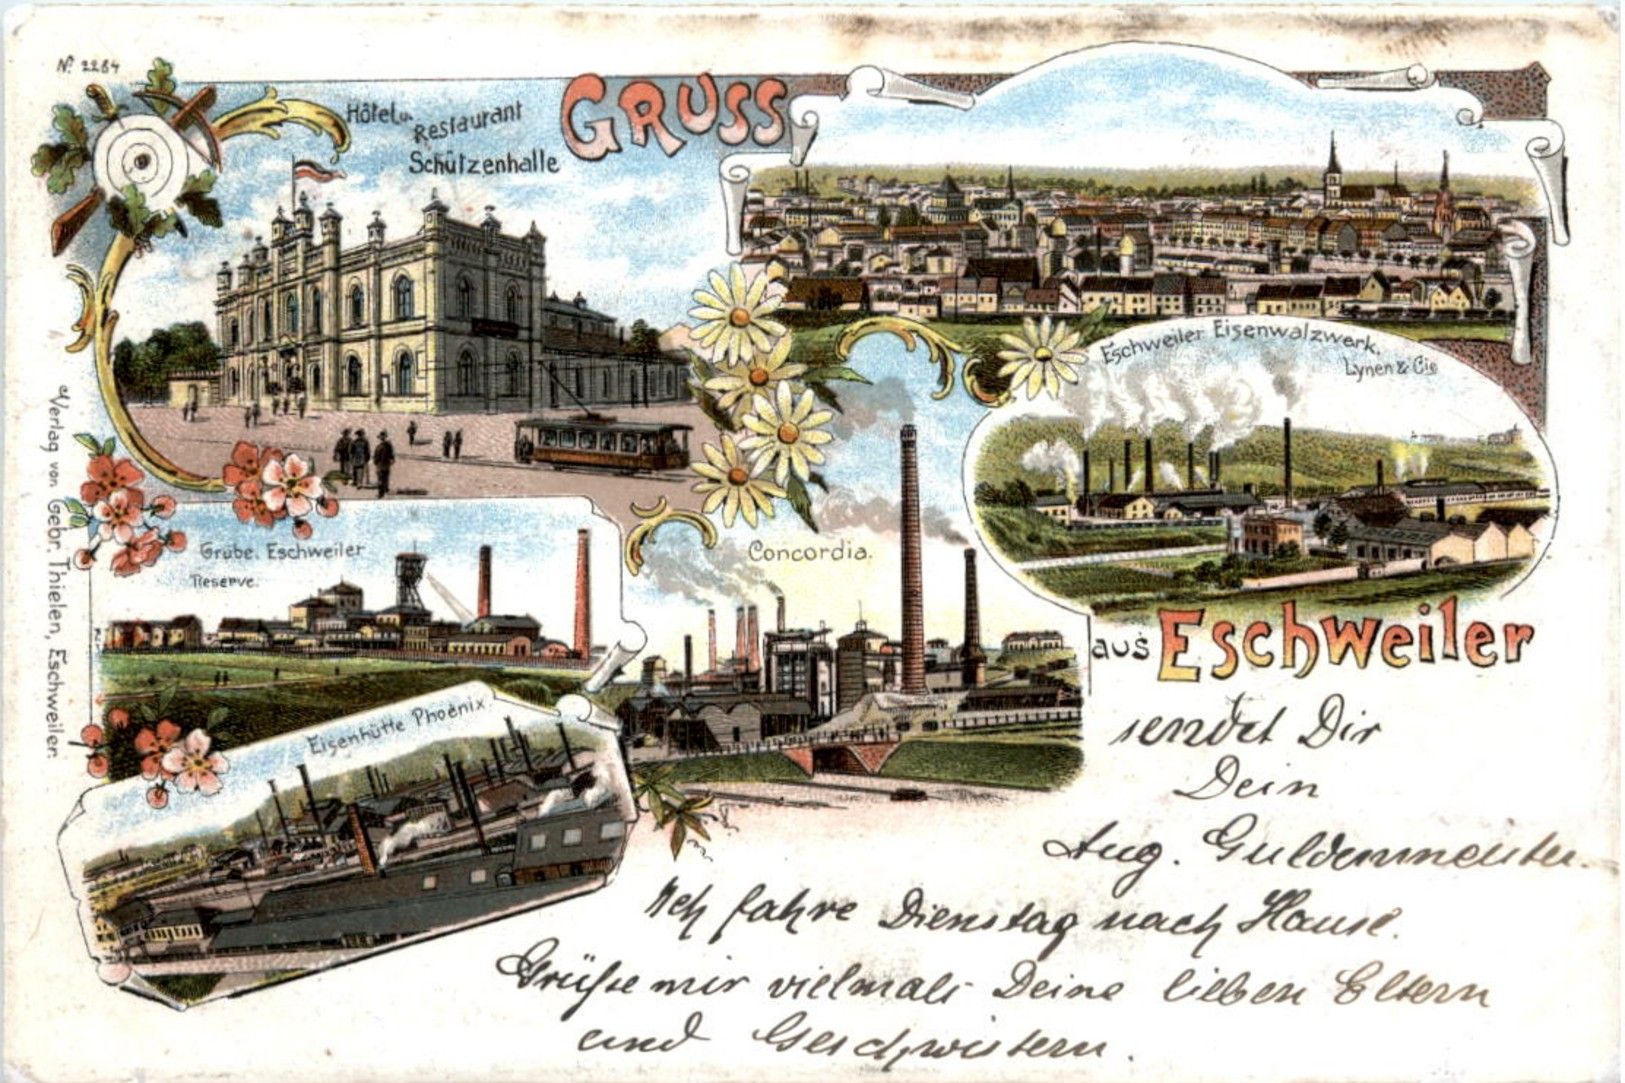 No. 2284
Hôtel u.
Restaurant
Schützenhalle
GRUSS
Eschweiler Eisenwalzwerk.
Lynen & Cie
Grube. Eschweiler
Reserve.
Concordia.
aus Eschweiler
Eisenhütte Phoenix.
Verlag von Gebr. Thielen, Eschweiler.
sendet Dir
Dein
Aug.
Ich fahre Dienstag nach Hause.
Grüße mir vielmals Deine lieben Eltern
und Geschwistern.